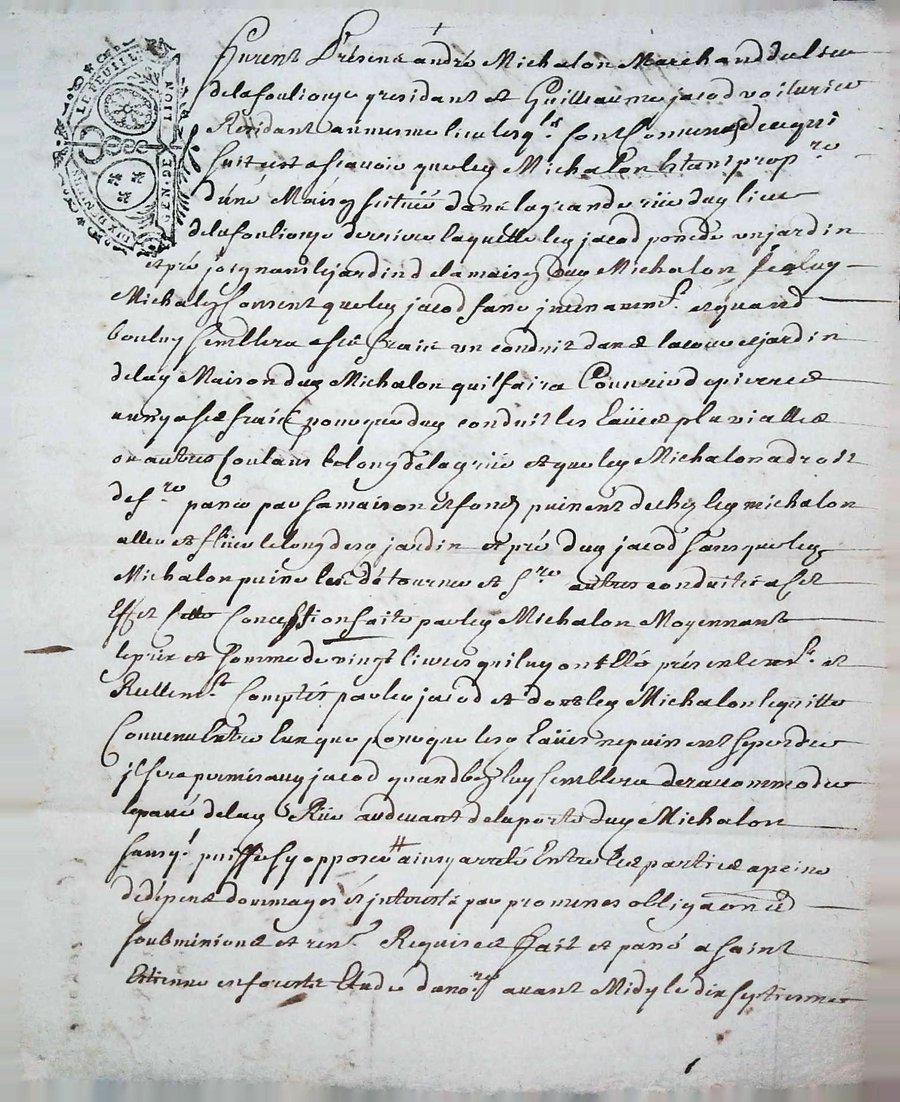 LE FEUILLE
GENER LION
DIX DENIERS
Furent Présens andré Michalon Marchand du lieu
delafoulione y residant et Guilleaume jacod voiturier
Residant au mesme lieu lesq.ls sont Convenus de ce qui
suit est a scavoir que led Michalon Estant prop.re
d'une Maison scituée dans la grande rüe dud lieu
delafoulione derriere laquelle led jacod possede un jardin
et pré joignans le jardin de la maison dud Michalon
Michalon consent que led jacod fasse et quand
bon luy semblera a ses fraix un conduit dans la cour et jardin
de lad Maison dud Michalon qu'il faira Couvrir de pierres
aussy a ses fraix pour que dud conduit les Eaües pluvialles
ou autres coulans le long de la rüe et que led Michalon a droit
de f.re passer par sa maison et fonds puissent de chez led michalon
aller et fluer le long desd jardin et pré dud jacod sans que led
Michalon puisse les détourner et f.re autres conduits a cet
Effet cette Concession faite par led Michalon Moyennant
le prix et somme de vingt livres qui luy ont esté présentem.t et
Réellem.t Comptés par led jacod et dont led Michalon le quitte
Convenu Entre Eux que pour que lesd Eaües ne puissent se perdre
il sera permis aud jacod quand bon luy semblera de raccommoder
le pavé de lad Rüe au devant de la porte dud Michalon
sans q.l puisse s'y opposer # ainsy arreté Entre les parties a peine
de dépens dommages et interests par promesses obligaons
soubmissions et ren.t Requises Fait et passé a Saint
Estienne en forests Etude du no.re avant Midy le dix septiesme